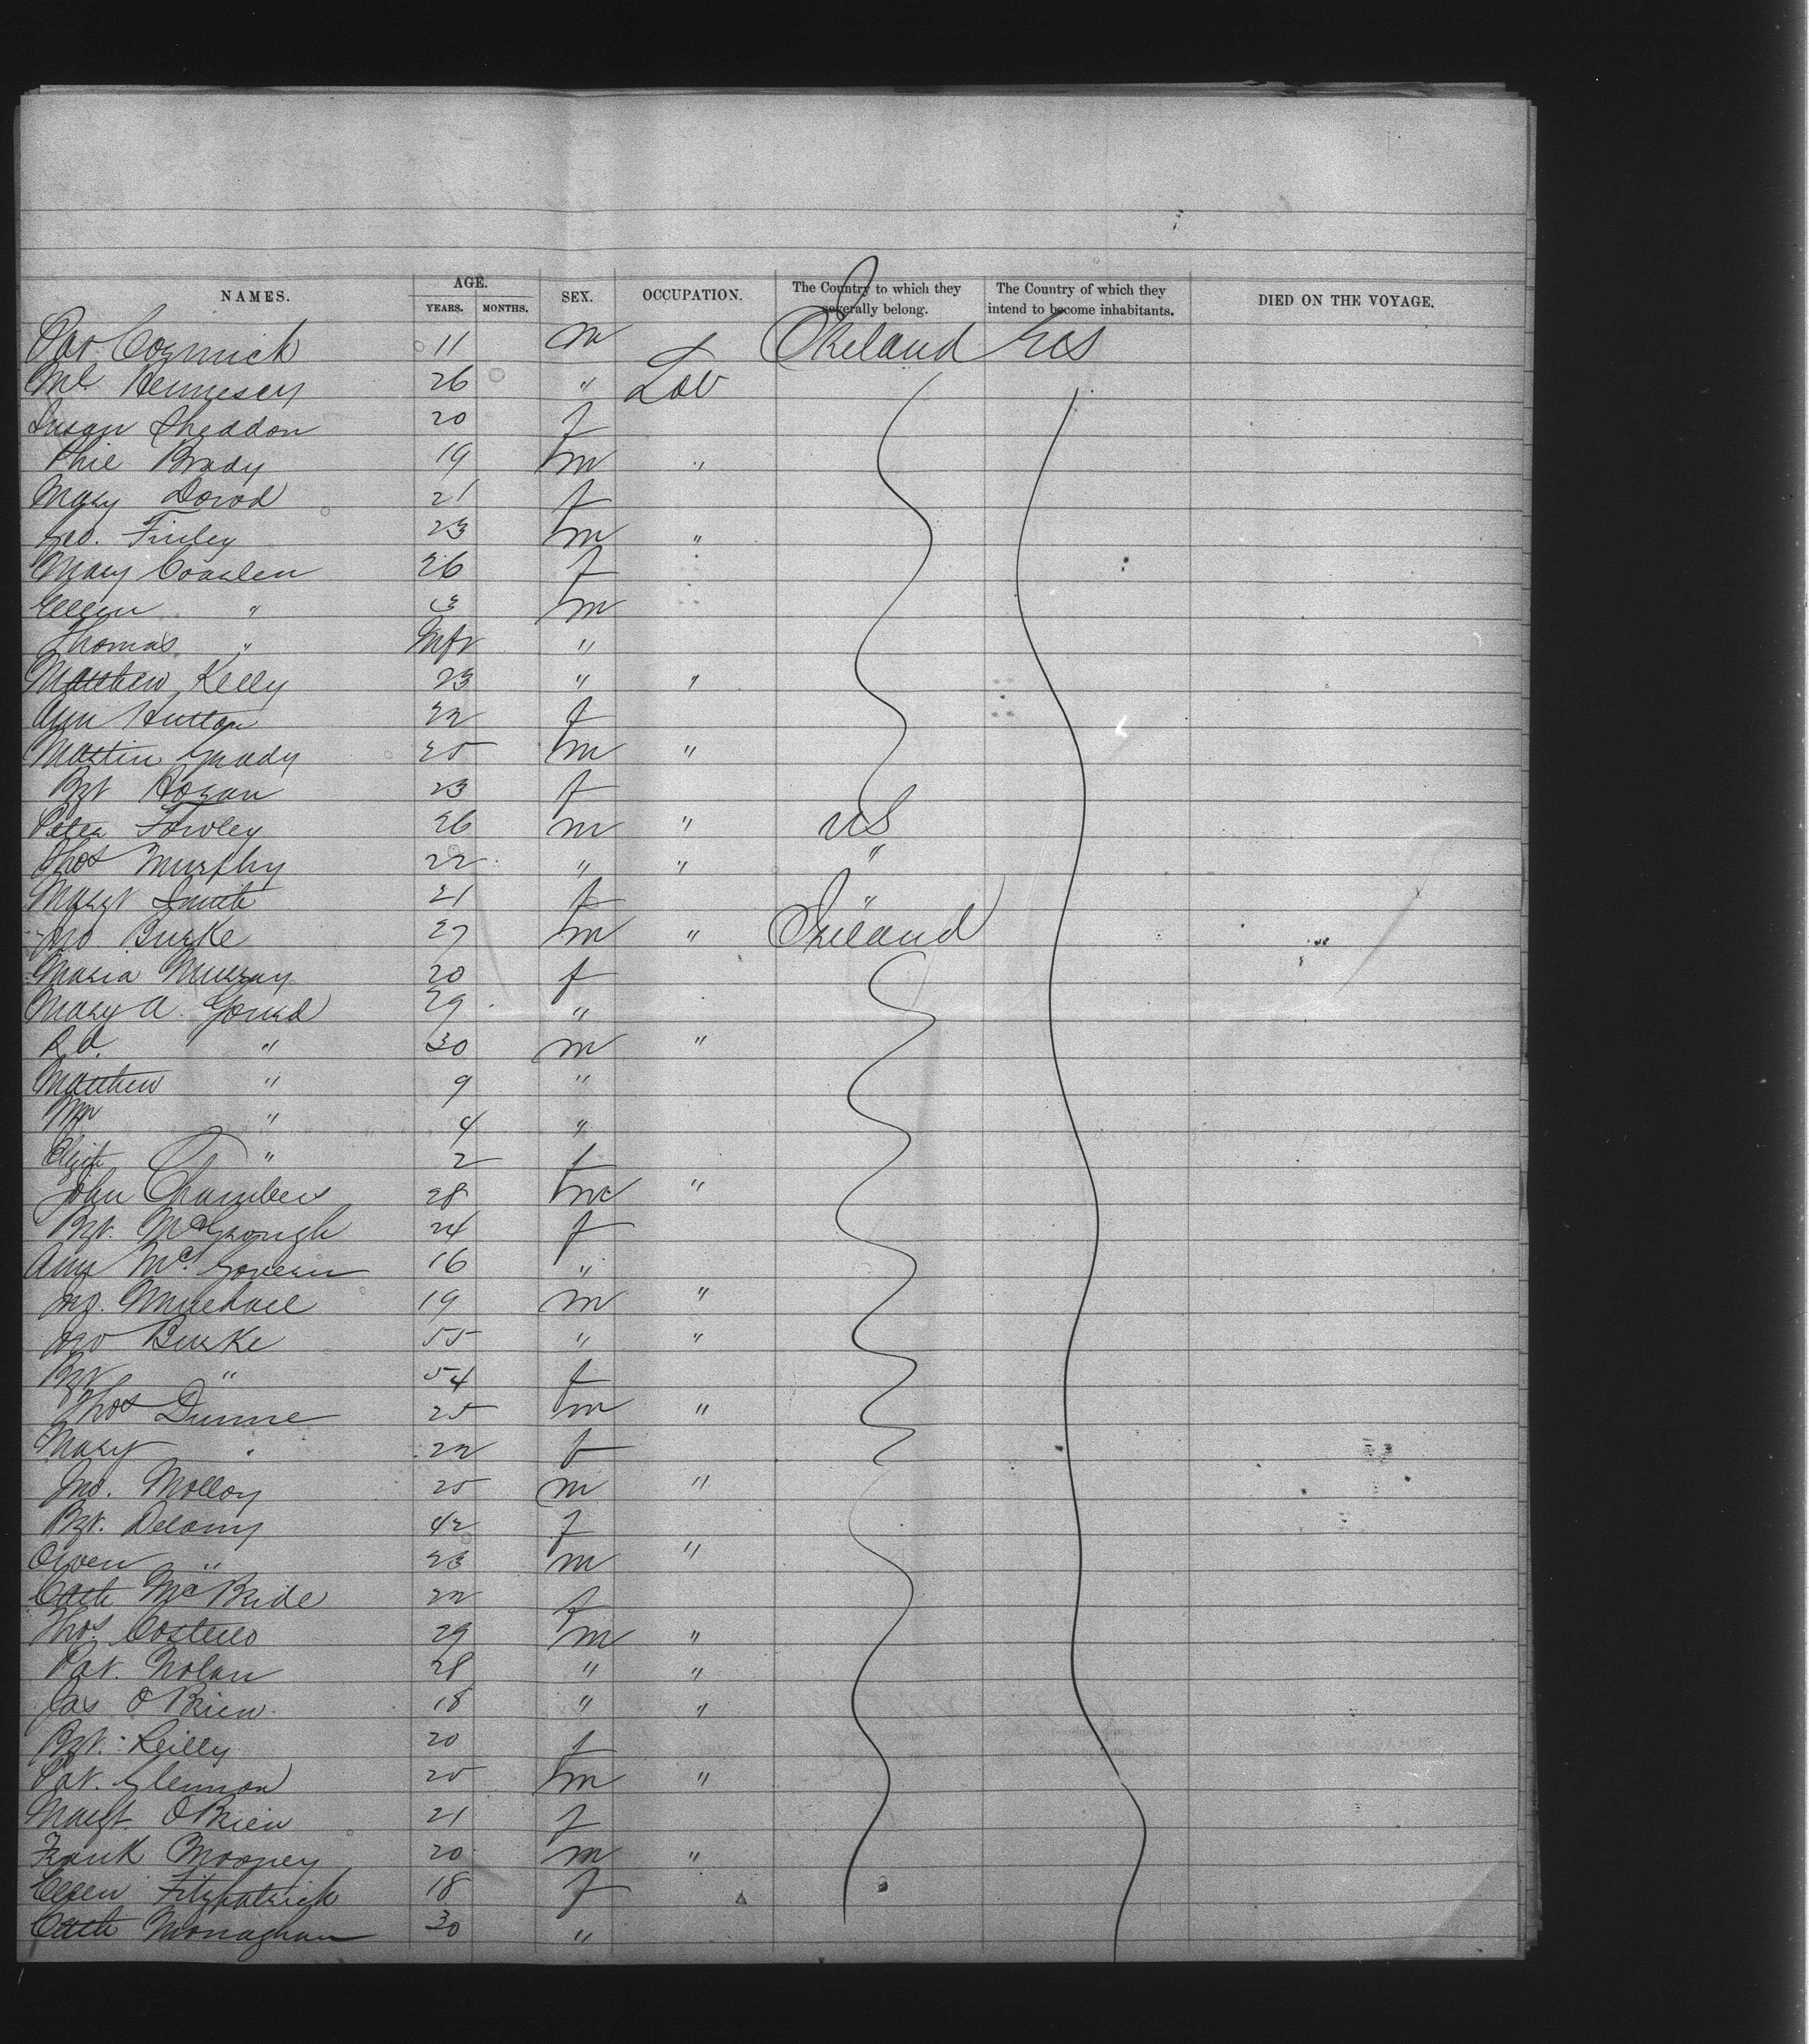 NAMES. AGE. SEX. OCCUPATION. The Country to which they severally belong. The Country of which they intend to become inhabitants. DIED ON THE VOYAGE.
YEARS. MONTHS.
Pat Cormick 11 m Ireland US
Ml. Hennesey 26 " Lab
Susan Sheddon 20 f
Phil Brady 19 m "
Mary Dowd 21 f
Geo. Finley 23 m "
Mary Coaslen 26 f
Ellen " 3 m
Thomas " Inft "
Matthew Kelly 23 " "
Ann Hutton 22 f
Martin Grady 25 m "
Bgt Hogan 23 f
Peter Fowley 26 m " US
Thos Murphy 22 " " "
Margt Smith 21 f "
Jno. Burke 27 m " Ireland
Maria Murray 20 f
Mary A. Gourd 29 "
R.D. " 30 m "
Matthew " 9 "
Wm " 4 "
Elizth " 2 f
John Chambers 28 m "
Bgt. McGrough 24 f
Ann Mc.Govern 16 "
Jno. 19 m "
Jno Burke 55 " "
Bgt " 54 f
Thos Dunne 25 m "
Mary " 22 f
Jno. Molloy 25 m "
Bgt. Delany 42 f
Owen " 23 m "
Cath McBride 22 f
Thos. Costello 29 m "
Pat. Nolan 28 " "
Jas O'Brien 18 " "
Bgt. Reilly 20 f
Pat. Glennon 25 m "
Margt. O'Brien 21 f
Frank Mooney 20 m "
Ellen Fitzpatrick 18 f
Cath Monaghan 30 "